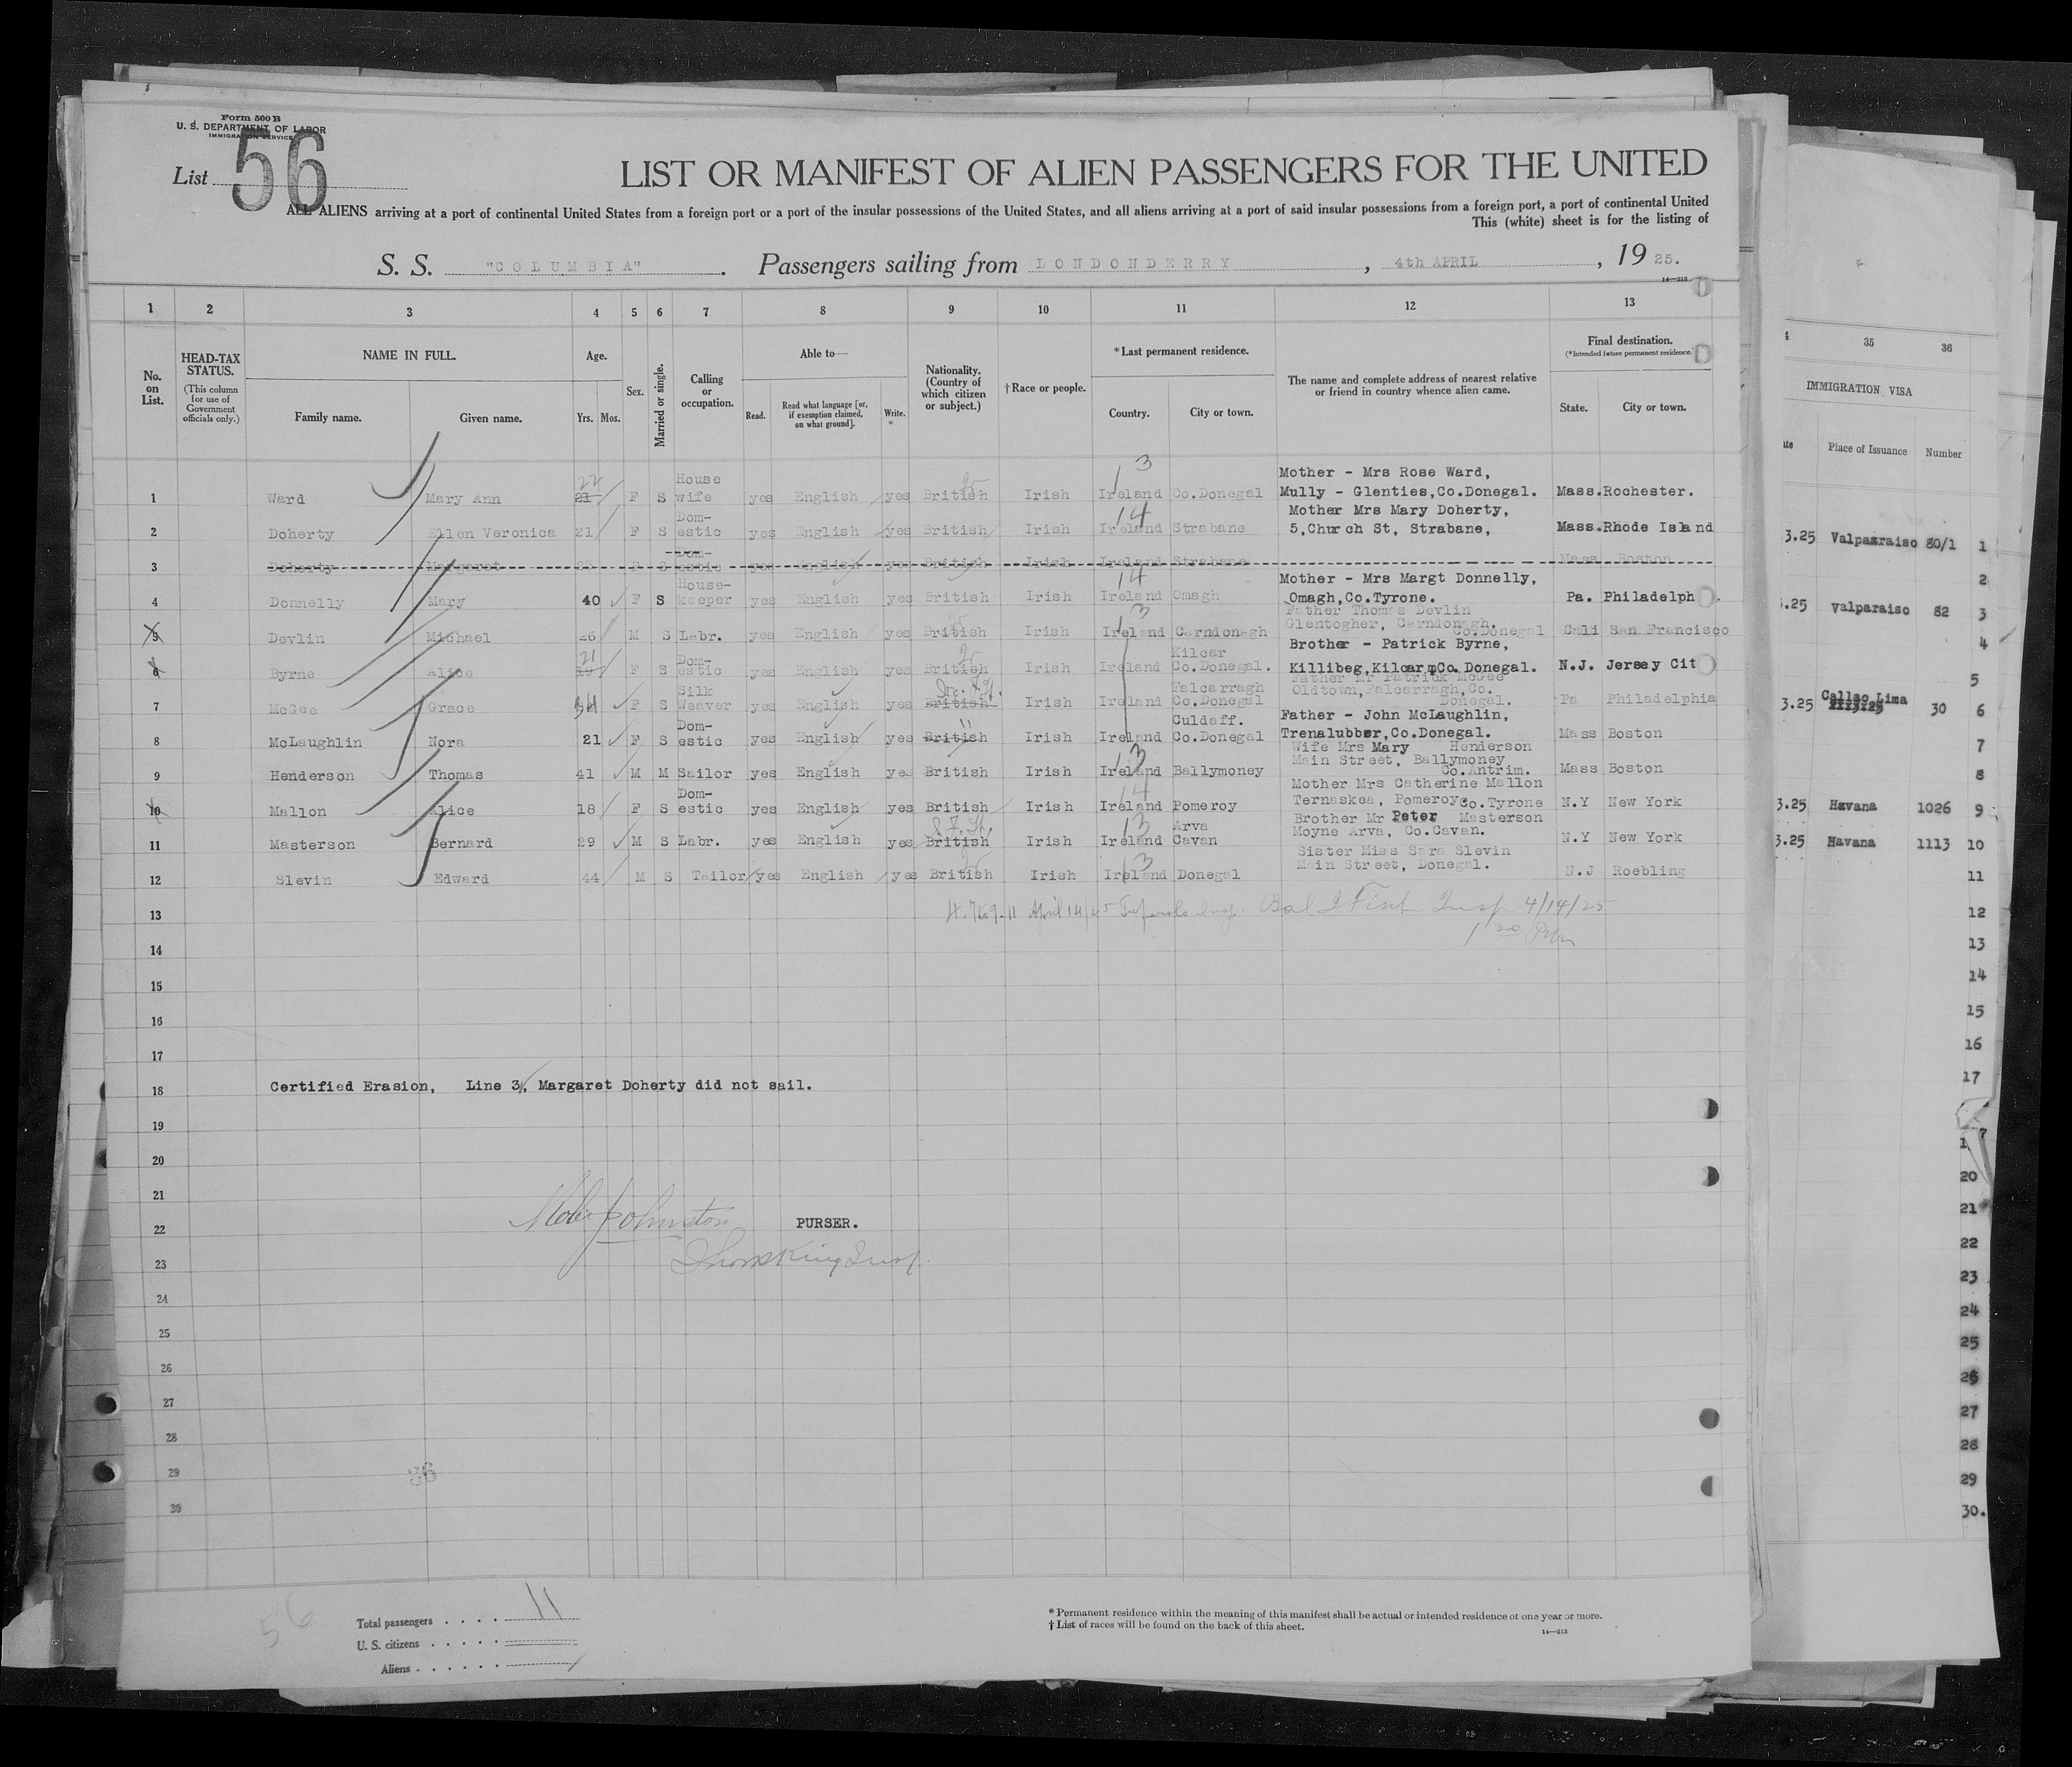 Form 500 B
U. S. DEPARTMENT OF LABOR
IMMIGRATION SERVICE
List 56
LIST OR MANIFEST OF ALIEN PASSENGERS FOR THE UNITED
ALL ALIENS arriving at a port of continental United States from a foreign port or a port of the insular possessions of the United States, and all aliens arriving at a port of said insular possessions from a foreign port, a port of continental United
This (white) sheet is for the listing of
S. S. "COLUMBIA". Passengers sailing from LONDONDERRY, 4th APRIL, 19 25.
14—213
1 2 3 4 5 6 7 8 9 10 11 12 13
No. on List. HEAD-TAX STATUS. (This column for use of Government officials only.) NAME IN FULL. Family name. Given name. Age. Yrs. Mos. Sex. Married or single. Calling or occupation. Able to— Read. Read what language [or, if exemption claimed, on what ground]. Write. * Nationality. (Country of which citizen or subject.) † Race or people. * Last permanent residence. Country. City or town. The name and complete address of nearest relative or friend in country whence alien came. Final destination. (* Intended future permanent residence.) State. City or town.
1 Ward Mary Ann 21 22 F S House wife yes English yes British Irish Ireland Co.Donegal Mother - Mrs Rose Ward, Mully - Glenties,Co.Donegal. Mass. Rochester.
2 Doherty Ellen Veronica 21 F S Dom- estic yes English yes British Irish Ireland Strabane Mother Mrs Mary Doherty, 5,Church St, Strabane, Mass. Rhode Island
3 Doherty Margaret F S Dom- estic yes English yes British Irish Ireland Strabane Mass Boston
4 Donnelly Mary 40 F S House- keeper yes English yes British Irish Ireland Omagh Mother - Mrs Margt Donnelly, Omagh,Co.Tyrone. Pa. Philadelph
5 Devlin Michael 26 M S Labr. yes English yes British Irish Ireland Carndonagh Father Thomas Devlin Glentogher, Carndonagh. Co.Donegal Cali San Francisco
6 Byrne Alice 21 F S Dom- estic yes English yes British Irish Ireland Kilcar Co.Donegal. Brother - Patrick Byrne, Killibeg,Kilcar,Co. Donegal. N.J. Jersey Cit
7 McGee Grace F S Silk Weaver yes English yes British Irish Ireland Falcarragh Co.Donegal Father Mr Patrick McGee Oldtown,Falcarragh,Co. Donegal. Pa Philadelphia
8 McLaughlin Nora 21 F S Dom- estic yes English yes British Irish Ireland Culdaff. Co.Donegal Father - John McLaughlin, Trenalubber,Co.Donegal. Mass Boston
9 Henderson Thomas 41 M M Sailor yes English yes British Irish Ireland Ballymoney Wife Mrs Mary Henderson Main Street, Ballymoney Co.Antrim. Mass Boston
10 Mallon Alice 18 F S Dom- estic yes English yes British Irish Ireland Pomeroy Mother Mrs Catherine Mallon Ternaskea, Pomeroy Co.Tyrone N.Y New York
11 Masterson Bernard 29 M S Labr. yes English yes British Irish Ireland Arva Cavan Brother Mr Peter Masterson Moyne Arva, Co.Cavan. N.Y New York
12 Slevin Edward 44 M S Tailor yes English yes British Irish Ireland Donegal Sister Miss Sara Slevin Main Street, Donegal. N.J Roebling
13 April 14/25 Insp 4/14/25
14
15
16
17
18 Certified Erasion, Line 3, Margaret Doherty did not sail.
19
20
21
22 Johnston PURSER.
23 King Insp.
24
25
26
27
28
29
30
56
Total passengers . . . . 11
U. S. citizens . . . . .
Aliens . . . . . .
* Permanent residence within the meaning of this manifest shall be actual or intended residence of one year or more.
† List of races will be found on the back of this sheet.
14—213
35 36
IMMIGRATION VISA
Place of Issuance Number
3.25 Valparaiso 80/1 1
2
.25 Valparaiso 82 3
4
5
3.25 Callao Lima 30 6
7
8
3.25 Havana 1026 9
3.25 Havana 1113 10
11
12
13
14
15
16
17
20
21
22
23
24
25
26
27
28
29
30.